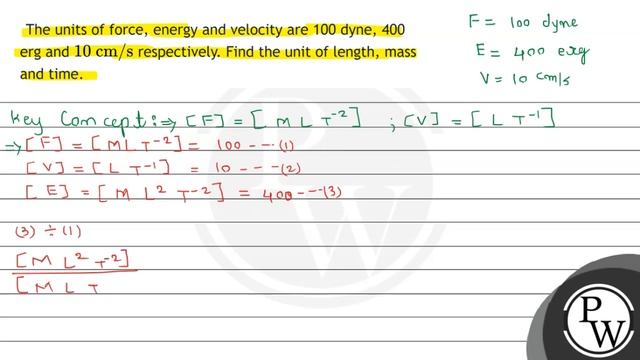 The units of force, energy and velocity are 100 dyne, 400
erg and 10 cm/s respectively. Find the unit of length, mass
and time.
F = 100 dyne
E = 400 erg
V = 10 cm/s
Key Concept :⇒ [F] = [M L T⁻²] ; [V] = [L T⁻¹]
⇒ [F] = [M L T⁻²] = 100 --- (1)
[V] = [L T⁻¹] = 10 --- (2)
[E] = [M L² T⁻²] = 400 --- (3)
(3) ÷ (1)
[M L² T⁻²]
[M L T
P
W